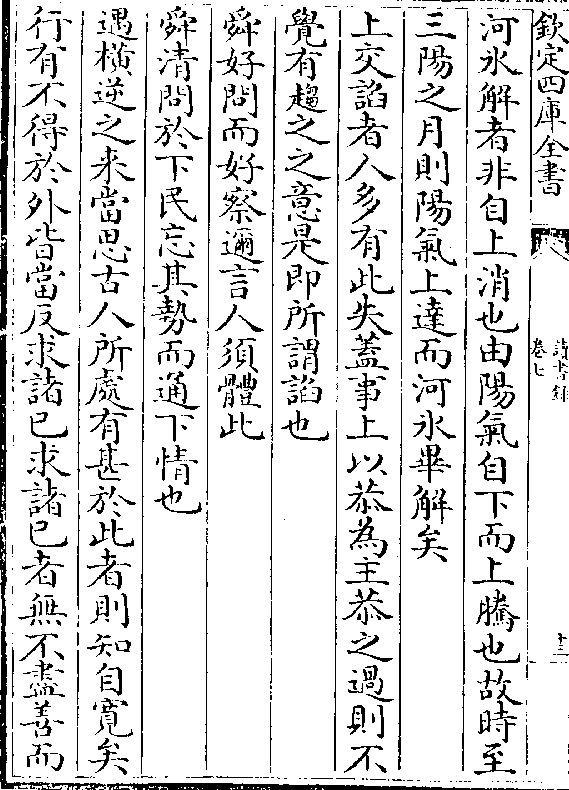 欽定四庫全書
讀書錄
卷七
十三
河氷解者非自上消也由陽氣自下而上騰也故時至
三陽之月則陽氣上達而河氷畢解矣
上交諂者人多有此失蓋事上以恭為主恭之過則不
覺有趨之之意是即所謂諂也
舜好問而好察邇言人須體此
舜清問於下民忘其勢而通下情也
遇横逆之来當思古人所處有甚於此者則知自寛矣
行有不得於外皆當反求諸已求諸已者無不盡善而